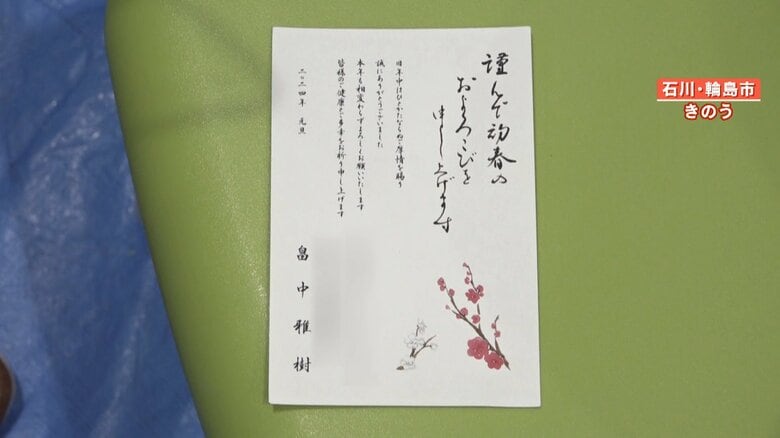 石川・輪島市
きのう
謹んで初春の
およろこびを
申し上げます
旧年中はひとかたならぬご厚情を賜り
誠にありがとうございました
本年も相変わらずよろしくお願いいたします
皆様のご健康とご多幸をお祈り申し上げます
二〇二四年 元旦
畠中雅樹